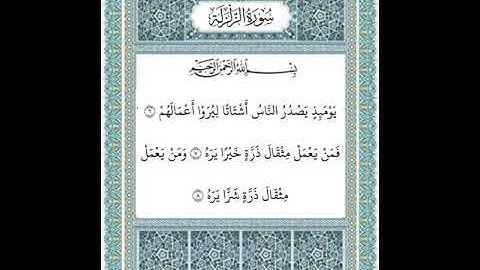 سُورَةُ الزَّلْزَلَةِ
بِسْمِ اللَّهِ الرَّحْمَٰنِ الرَّحِيمِ
يَوْمَئِذٍ يَصْدُرُ النَّاسُ أَشْتَاتًا لِيُرَوْا أَعْمَالَهُمْ ٦
فَمَنْ يَعْمَلْ مِثْقَالَ ذَرَّةٍ خَيْرًا يَرَهُ ٧ وَمَنْ يَعْمَلْ
مِثْقَالَ ذَرَّةٍ شَرًّا يَرَهُ ٨